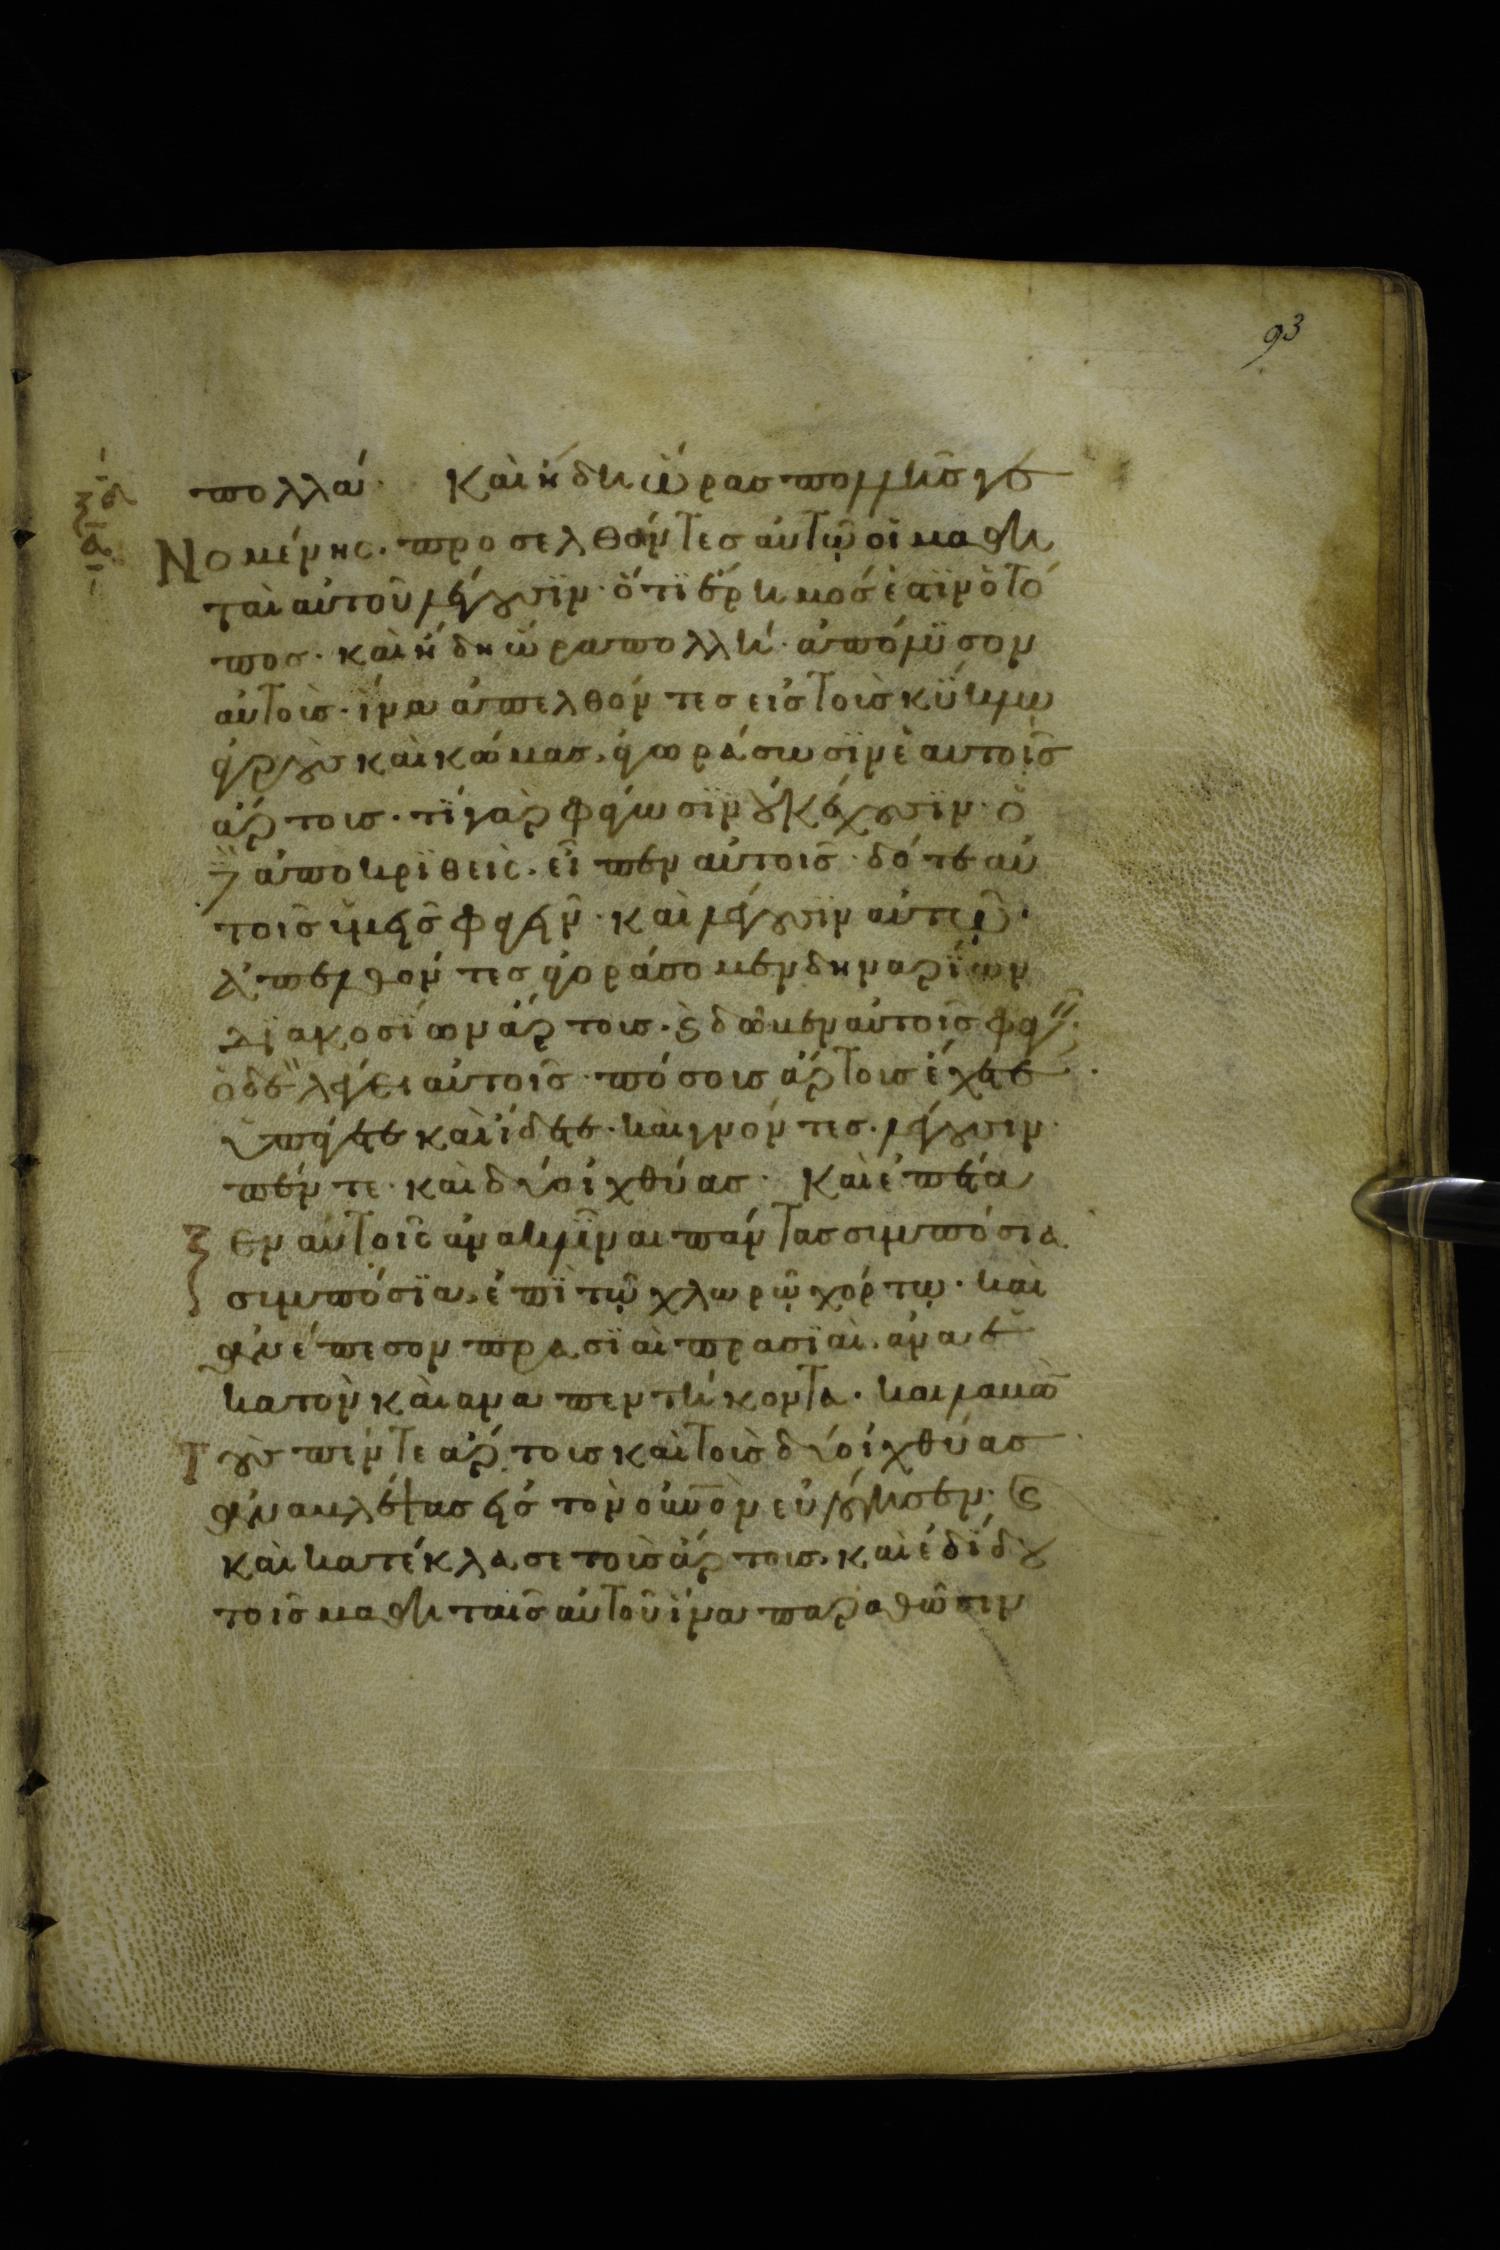 93
πολλά· Καὶ ἤδη ὥρας πολλῆς γε
ξδ
α
Νομένης· προσελθόντες αὐτῷ οἱ μαθη
ταὶ αὐτοῦ λέγουσϊν· ὅτϊ ἔρημός ἐστϊν ὁ τό
πος· καὶ ἤδη ὥρα πολλή· ἀπόλϋσον
αὐτοὺς· ἵνα ἀπελθόντες εἰς τοὺς κϋκλω
ἀγροὺς καὶ κώμας, ἀγοράσωσϊν ἑαυτοῖς
ἄρτους· τί γὰρ φάγωσϊν οὐκ ἔχουσϊν· ὁ
δὲ ἀποκρϊθεὶς· εἶπεν αὐτοῖς· δότε αὐ
τοῖς ὑμεῖς φαγεῖν· καὶ λέγουσϊν αὐτῷ·
ἀπελθόντες ἀγοράσομεν δηναρΐων
διακοσΐων ἄρτους· καὶ δῶμεν αὐτοῖς φαγεῖν·
ὁ δὲ λέγει αὐτοῖς· πόσους ἄρτους ἔχετε·
ὑπάγετε καὶ ἴδετε· καὶ γνόντες· λέγουσιν·
πέντε· καὶ δύο ἰχθύας· Καὶ ἐπέτα
ξεν αὐτοῖς ἀνακλῖναι πάντας συμπόσια
συμπόσϊα, ἐπϊ τῷ χλωρῷ χόρτῳ· καὶ
ἀνέπεσον πρασϊαὶ πρασϊαὶ, ἀνὰ ἑ
κατὸν καὶ ανα πεντήκοντα· καὶ λαβὼ
τοὺς πέντε ἄρτους καὶ τοὺς δύο ἰχθύας
ἀναβλέψας εἰς τὸν οὐνὸν εὐλόγησεν·
καὶ κατέκλασε τοὺς ἄρτους, καὶ ἐδίδου
τοῖς μαθηταῖς αὐτοῦ ἵνα παραθῶσιν